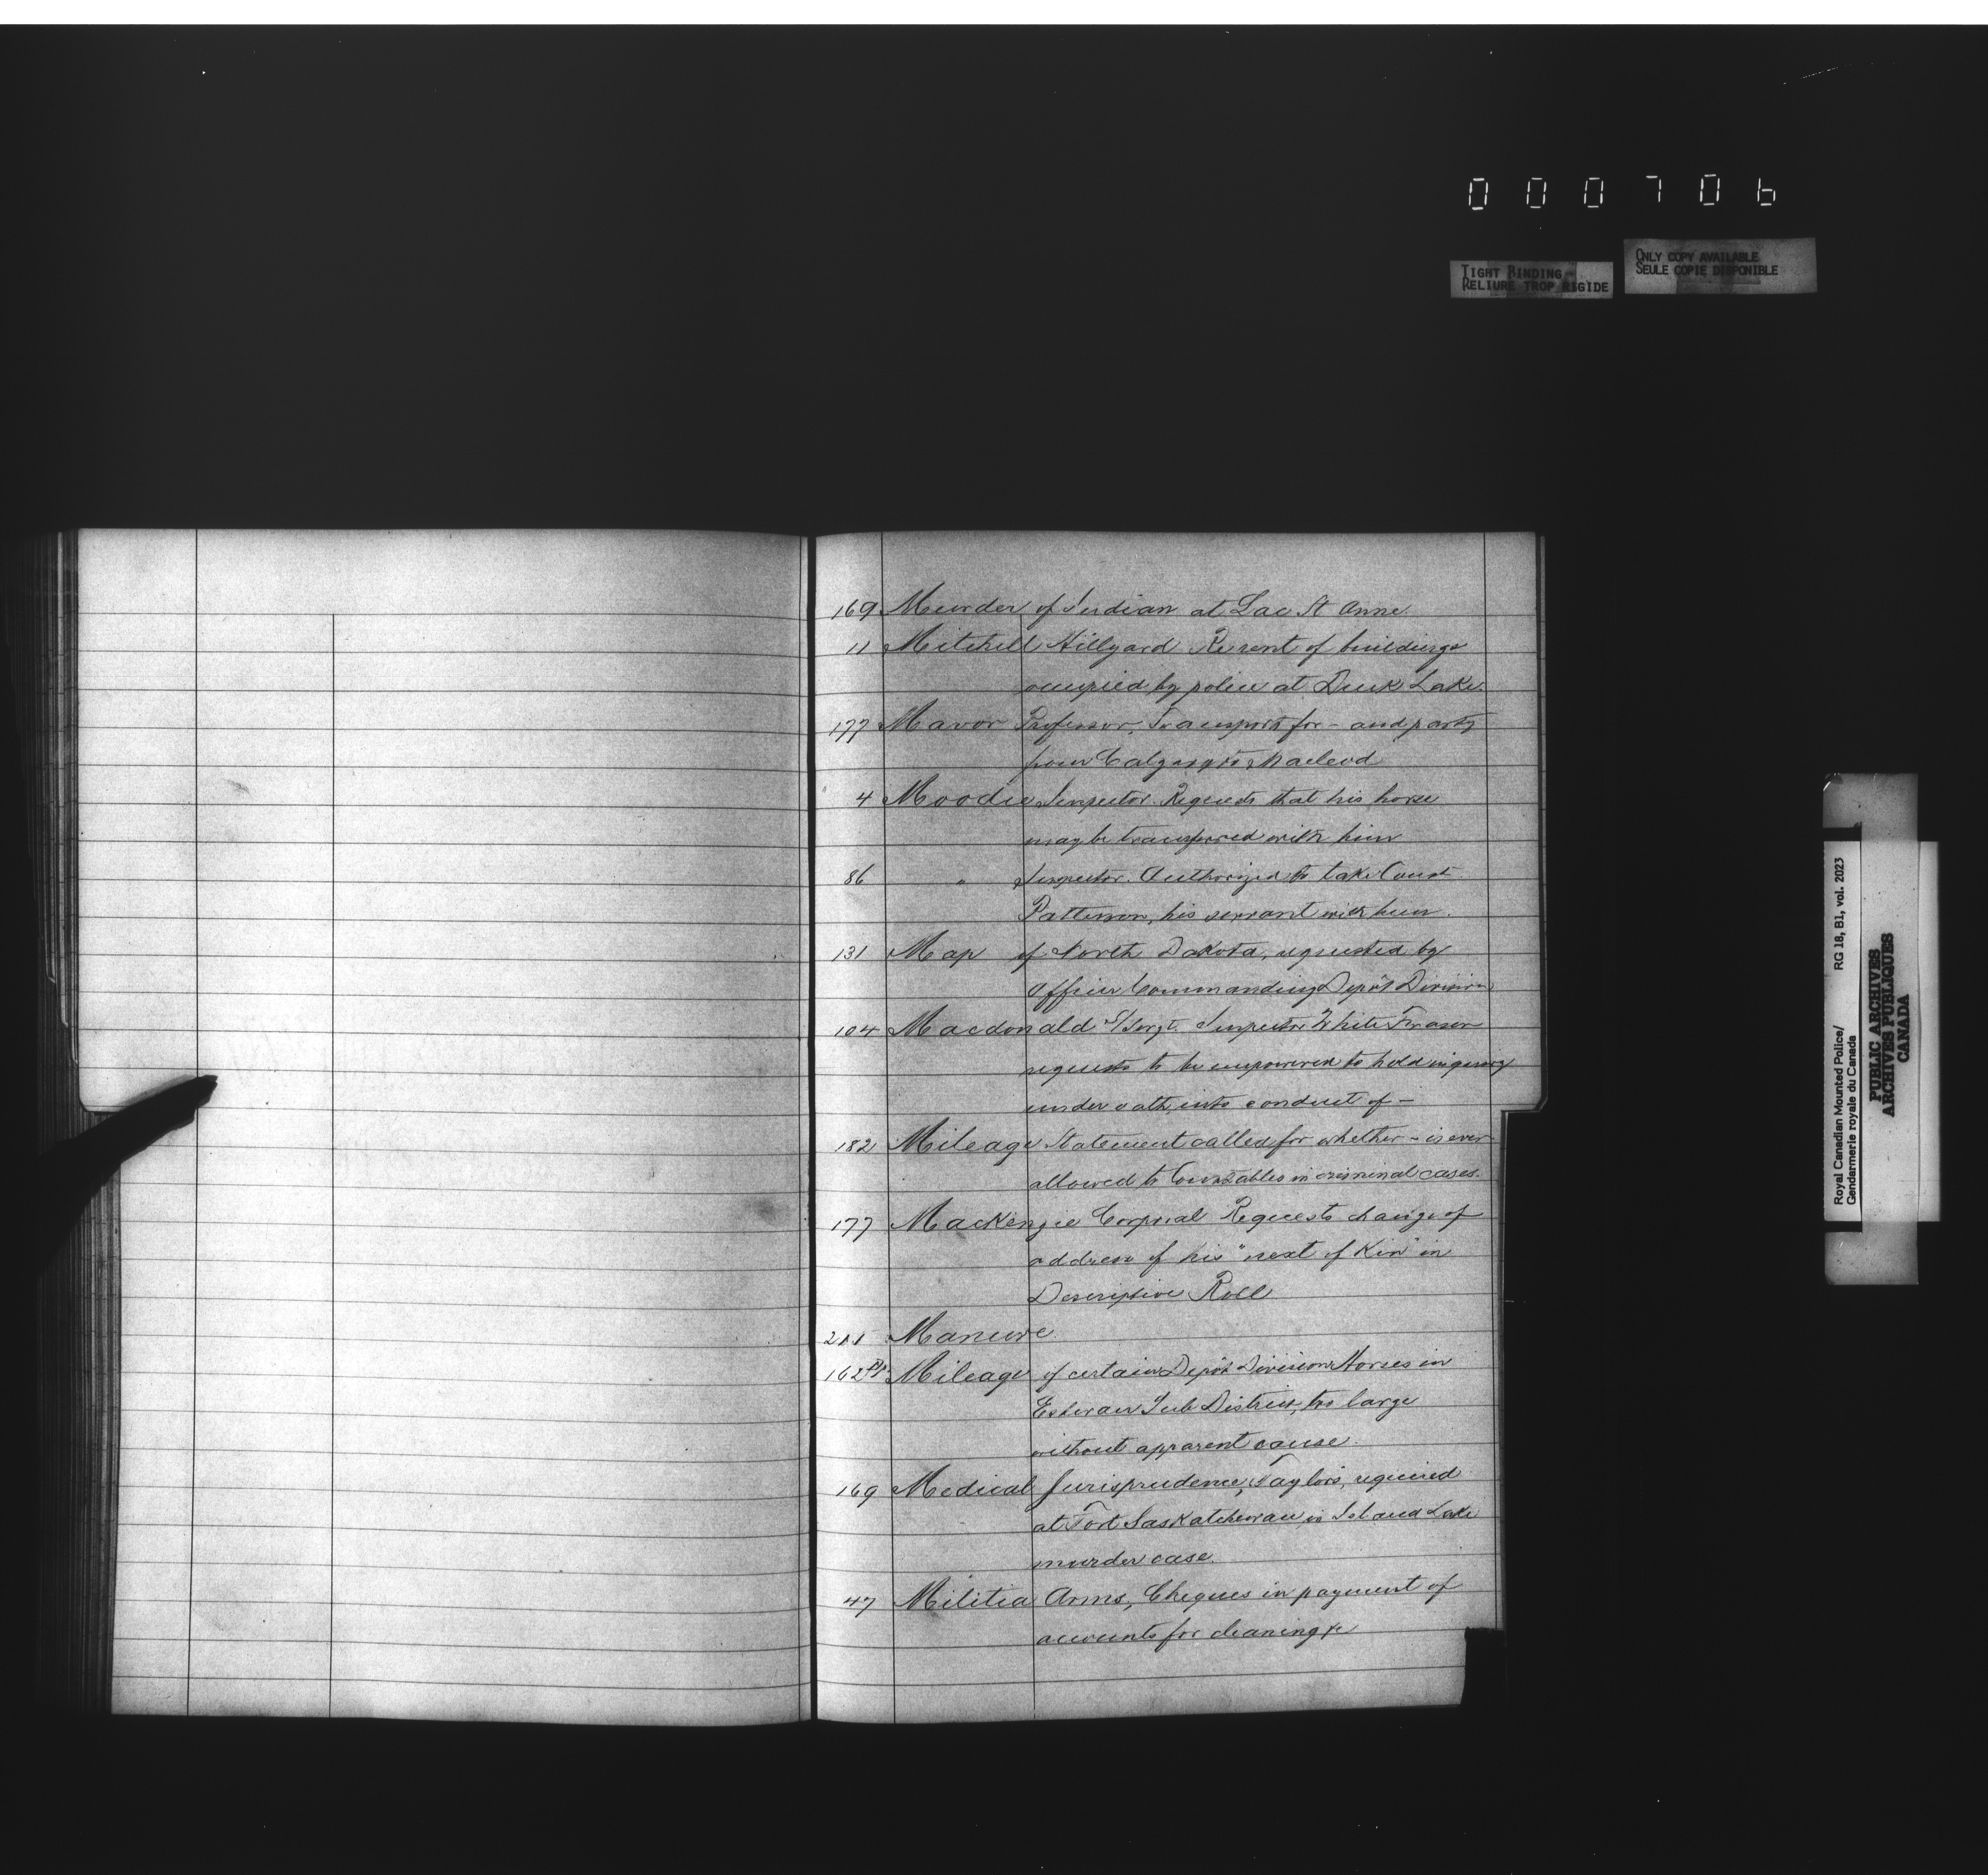 000706
TIGHT BINDING-
RELIURE TROP RIGIDE
ONLY COPY AVAILABLE
SEULE COPIE DISPONIBLE
169 Murder of Indian at Lac St Anne.
11 Mitchell Hillyard Re rent of buildings
occupied by police at Duck Lake.
177 Mavor Professor, Transport for - and party
from Calgary to Macleod
4 Moodie Inspector. Requests that his horse
may be transferred with him
86 " Inspector. Authorized to take Const
Patterson, his servant with him.
131 Map of North Dakota, requested by
Officer Commanding Depôt Division
104 Macdonald S/Sergt. Inspector White Fraser
requests to be empowered to hold inquiry
under oath, into conduct of -
182 Mileage Statement called for whether - is ever
allowed to Constables in criminal cases.
177 Mackenzie Corporal Requests change of
address of his "next of Kin" in
Descriptive Roll
211 Manure.
162 Mileage of certain Depôt Division Horses in
Estevan Sub District, too large
without apparent cause.
169 Medical Jurisprudence, Taylor's, required
at Fort Saskatchewan in Island Lake
murder case.
47 Militia Arms, Cheques in payment of
accounts for cleaning &c
Royal Canadian Mounted Police/
Gendarmerie royale du Canada
RG 18, B1, vol. 2023
PUBLIC ARCHIVES
ARCHIVES PUBLIQUES
CANADA